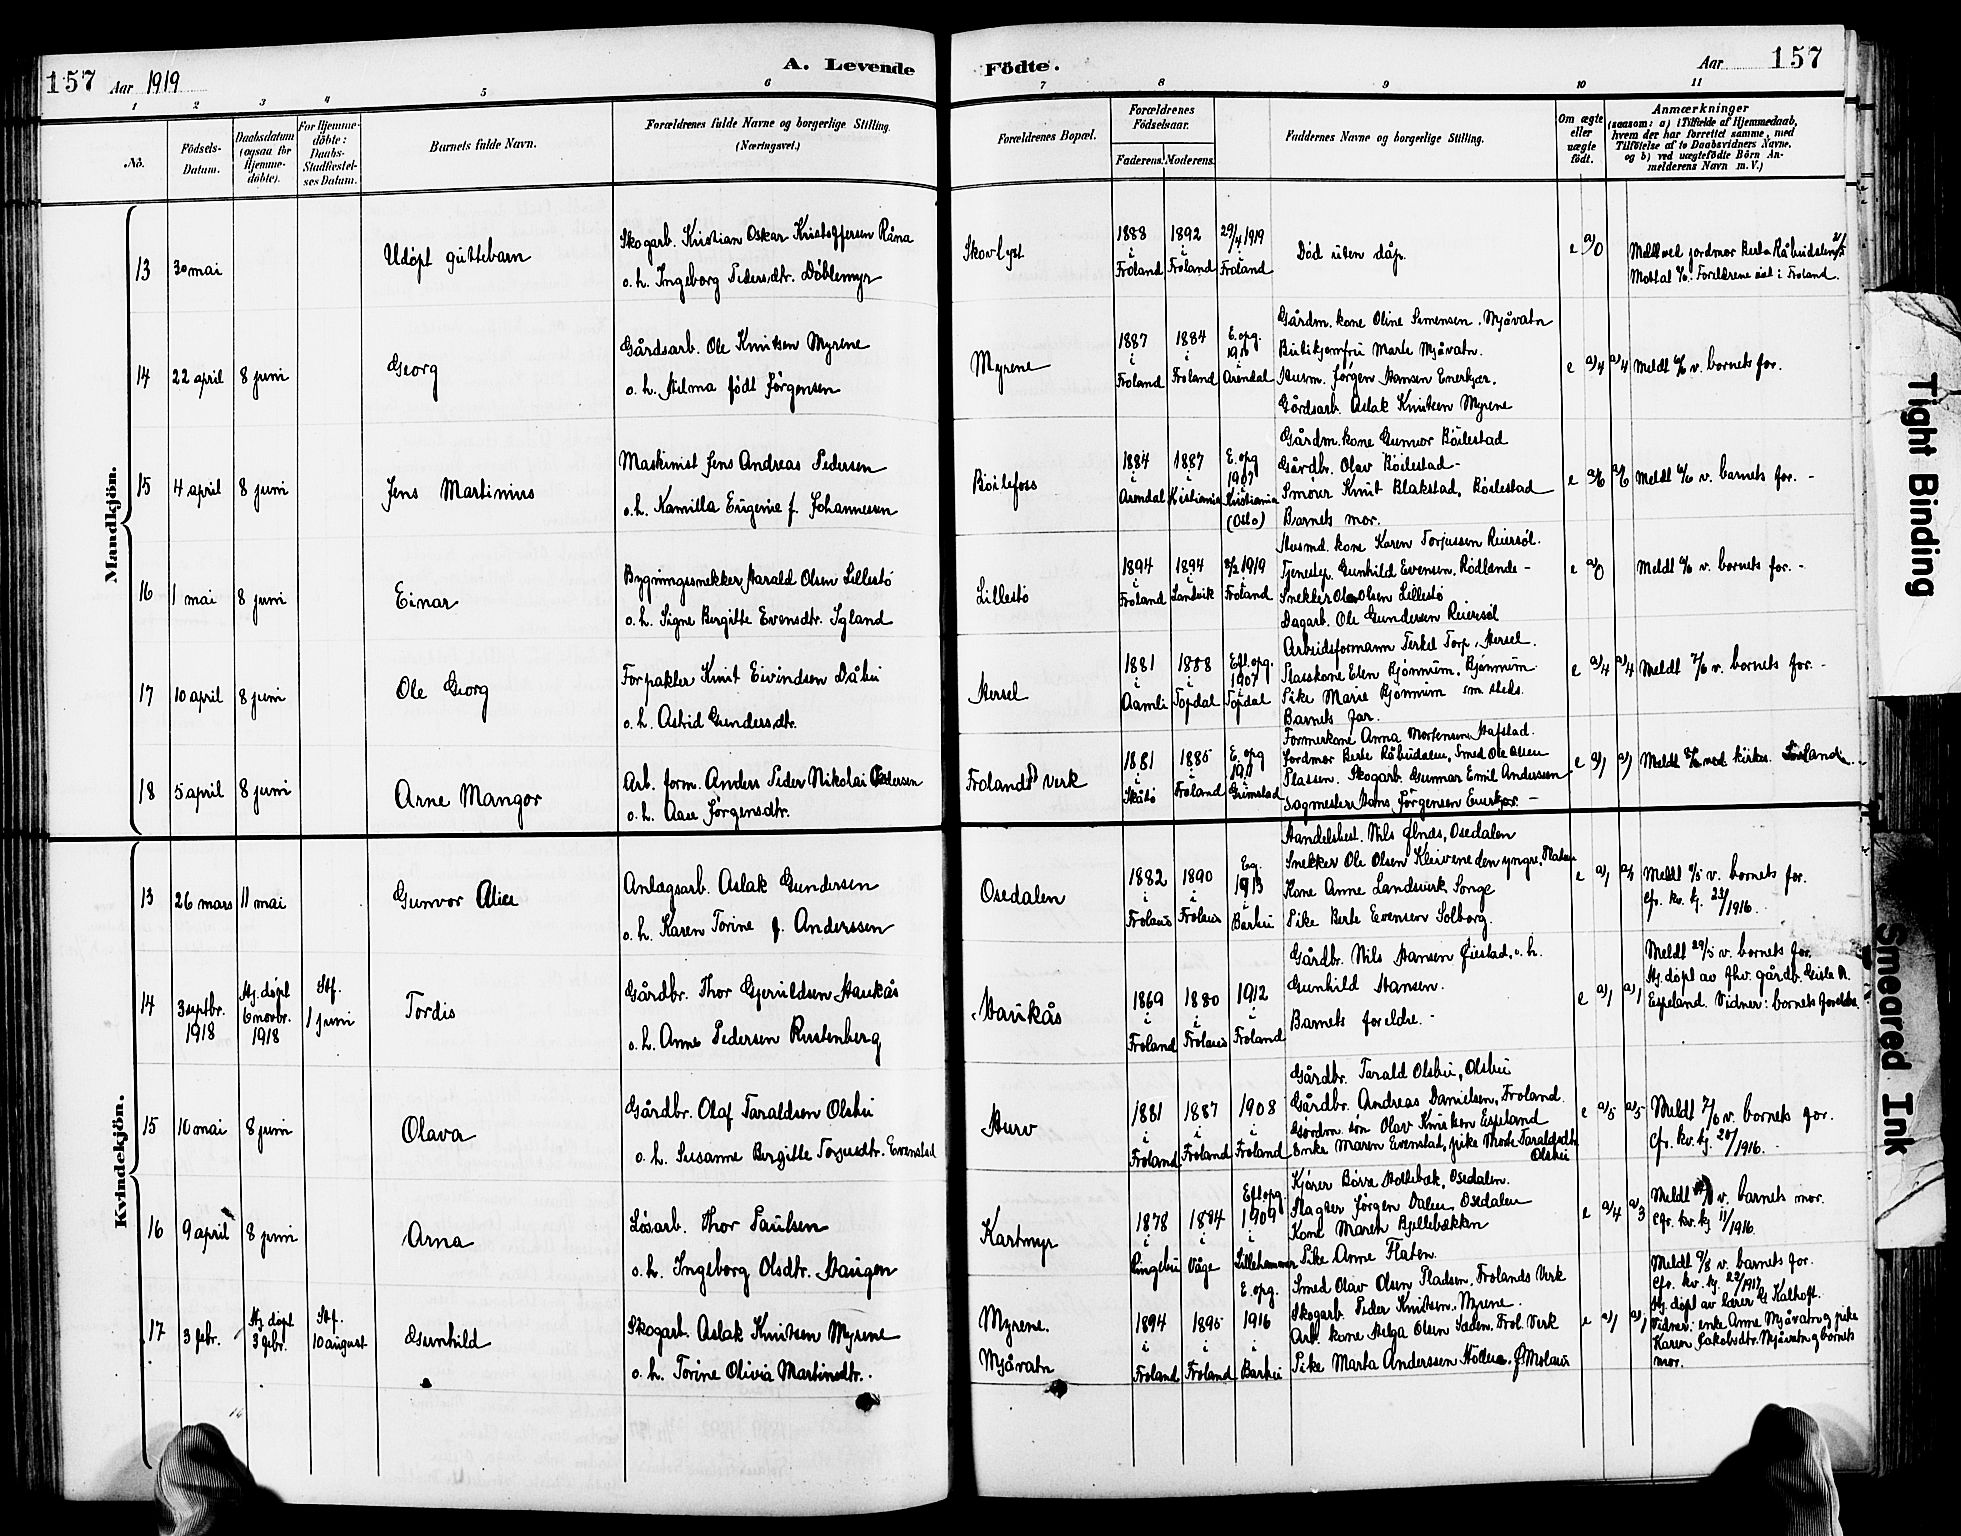 157 Aar 1919
A. Levende
Födte.
Aar 157
1 2 3 4 5 6 7 8 9 10 11
No.
Födsels-
Datum.
Daabsdatum
(ogsaa for
Hjemme-
döbte).
For Hjemme-
döbte:
Daabs-
Stadfæstel-
ses Datum.
Barnets fulde Navn.
Forældrenes fulde Navne og borgerlige Stilling.
(Næringsvei.)
Forældrenes Bopæl.
Forældrenes
Födselsaar.
Faderens. Moderens.
Faddernes Navne og borgerlige Stilling.
Om ægte
eller
uægte
født.
Anmærkninger
(saasom: a) i Tilfælde af Hjemmedaab,
hvem der har forrettet samme, med
Tilföielse af to Daabsvidners Navne,
og b) ved uægtefödte Börn An-
melderens Navn m. V.)
Mandkjön.
13 30 mai
Udöpt guttebarn
Skogarb. Kristian Oskar Kristoffersen Råna
o. h. Ingeborg Pedersdtr. Döblemyr
Skovlyst
1888 i Froland
1892 i Froland
29/4 1919 i Froland
Död uten dåp.
e a/0
14 22 april 8 juni
Georg
Gårdsarb. Ole Knutsen Myrene
o. h. Hilma född Jörgensen
Myrene
1887 i Froland
1884 i Froland
E. opg. 1911 i Arendal
Gårdm. kone Oline Simensen, Mjåvatn
Butikjomfru Marte Mjåvatn.
Husm. Jörgen Hansen Enerkjær.
Gårdsarb. Aslak Knutsen Myrene
e a/4 a/4 Meldt 6/6 v. barnets far.
15 4 april 8 juni
Jens Martinius
Maskinist Jens Andreas Pedersen
o. h. Kamilla Eugenie f. Johannessen
Böilefoss
1884 i Arendal
1887 i Kristiania
E. opg 1907 i Kristiania (Oslo)
Gårdm. kone Gunvor Böilestad
Gårdbr. Olav Böilestad
Smörer Knut Blakstad, Böilestad
Barnets mor.
e a/6 a/6 Meldt 6/6 v. barnets far.
16 1 mai 8 juni
Einar
Bygningssnekker Harald Olsen Lillestö
o. h. Signe Bergitte Evensdtr. Igland
Lillestö
1894 i Froland
1894 i Landvik
8/2 1919 i Froland
Husmd. kone Karen Torjussen Reiersöl.
Tjenestep. Gunhild Evensen, Rödlande
Snekker Ola Olsen Lillestö
Dagarb. Ole Gundersen Reiersöl
e a/0 Meldt 6/6 v. barnets far.
17 10 april 8 juni
Ole Georg
Forpakter Knut Eivindsen Dåbu
o. h. Astrid Gundersdtr.
Hersel
1881 i Aamli
1888 i Topdal
Eft. opg. 1907 i Topdal
Arbeidsformann Terkel Torp, Hersel.
Plasskone Elen Bjönnum, Bjönnum
Pike Marie Bjönnum sm steds.
Barnets far.
e a/4 a/4 Meldt 7/6 v. barnets far.
18 5 april 8 juni
Arne Mangor
Arb. form. Anders Peder Nikolai Pedersen
o. h. Aase Jörgensdtr.
Frolands Verk
1881 i Skåtö
1885 i Froland
E. opg 1911 i Grimstad
Formerkone Anna Mortensen Hafstad.
Jordmor Berte Råbudalen, Smed Ole Olsen
Plassen. Skogarb. Gunnar Emil Anderssen
Sagmester Hans Jörgensen Enerkjær.
e a/1 a/1
Kvindekjön.
13 26 mars 11 mai
Gunvor Alice
Anlagsarb. Aslak Gundersen
o. h. Karen Torine f. Anderssen
Osedalen
1882 i Froland
1890 i Froland
Eg. 1913 i Barbu
Handelsbest. Nils Ölnes, Osedalen
Snekker Ole Olsen Kleivene den yngre, Flaten
Kone Anne Landverk Songe
Pike Berte Evensen Solborg.
e a/1 Meldt 9/5 v. barnets far.
Cfr. kv. kj. 23/1916.
14 3 septbr. 1918
Hj. döpt 6 novbr. 1918
Stf. 1 juni
Tordis
Gårdbr. Thor Gjeruldsen Haukås
o. h. Anne Pedersen Rustenberg
Haukås
1869 i Froland
1880 i Froland
1912 i Froland
Gårdbr. Nils Hansen Öiestad, o. h.
Gunhild Hansen.
Barnets foreldre.
e a/1 a/1
Meldt 29/5 v. barnets far.
Hj. döpt av fhv. gårdb. Gisle A.
Espeland. Vidner: barnets foreldre.
15 10 mai 8 juni
Olava
Gårdbr. Olaf Taraldsen Olsbu
o. h. Susanne Bergitte Torjusdtr. Evenstad
Hurv
1881 i Froland
1887 i Froland
1908 i Froland
Gårdbr. Tarald Olsbu, Olsbu
Gårdbr. Andreas Danielsen, Froland.
Gårdm. sön Olav Knutsen Espeland
Enke Maren Evenstad, pike Marte Taraldsdtr.
Olsbu
e a/5 a/5 Meldt 7/6 v. barnets far.
Cfr. kv. kj. 20/1916.
16 9 april 8 juni
Arna
Lösarb. Thor Paulsen
o. h. Ingeborg Olsdtr. Haugen
Kartmyr
1878 i Ringebu
1884 i Våge
Eft. opg. 1909 i Lillehammer
Kjörer Börre Holtebæk, Osedalen.
Slagter Jörgen Dalen Osedalen
Kone Maren Bjellebækken
Pike Anne Flaten.
e a/4 a/3 Meldt v. barnets mor.
Cfr. kv. kj. 11/1916.
17 3 febr.
Hj. döpt 3 febr.
Stf. 10 august
Gunhild
Skogarb. Aslak Knutsen Myrene
o. h. Torine Olivia Martinsdtr.
Myrene.
Mjåvatn
1894 i Froland
1895 i Froland
E. opg. 1916 i Barbu
Smed Olav Olsen Pladsen, Frolands Verk
Skogarb. Peder Knutsen, Myrene.
Arb. kone Helga Olsen Saden, Frol. Verk
Pike Marta Anderssen
e a/1 a/1
Meldt 9/8 v. barnets far.
Cfr. kv. kj. 22/1917
Hj. döpt av lærer G Kalhoft.
Vidner: enke Anne Mjåvatn og pike
Karen Jakobsdtr. Mjåvatn og barnets
mor.
Tight Binding
Smeared Ink